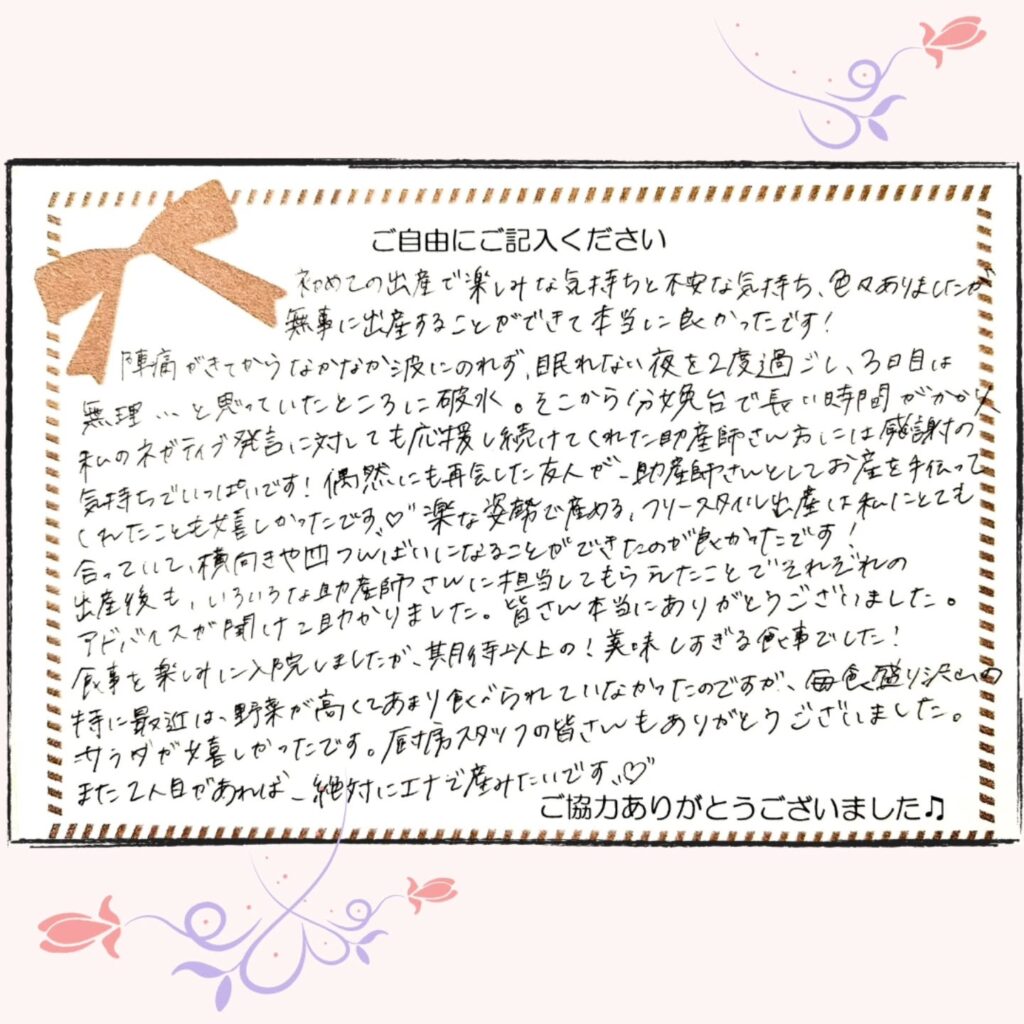 ご自由にご記入ください
初めての出産で楽しみな気持ちと不安な気持ち、色々ありましたが
無事に出産することができて本当に良かったです!
陣痛がきてからなかなか波にのれず、眠れない夜を2度過ごし、3日目は
無理…と思っていたところに破水。そこから分娩台で長い時間がかかり
私のネガティブ発言に対しても応援し続けてくれた助産師さん方には感謝の
気持ちでいっぱいです!偶然にも再会した友人が、助産師さんとしてお産を手伝って
くれたことも嬉しかったです♡楽な姿勢で産める、フリースタイル出産は私にとても
合っていて、横向きや四つんばいになることができたのが良かったです!
出産後も、いろいろな助産師さんに担当してもらえたことでそれぞれの
アドバイスが聞けて助かりました。皆さん本当にありがとうございました。
食事を楽しみに入院しましたが、期待以上の!美味しすぎる食事でした!
特に最近は、野菜が高くてあまり食べられていなかったのですが、毎食盛り沢山の
サラダが嬉しかったです。厨房スタッフの皆さんもありがとうございました。
また2人目があれば、絶対にエナで産みたいです♡
ご協力ありがとうございました♫